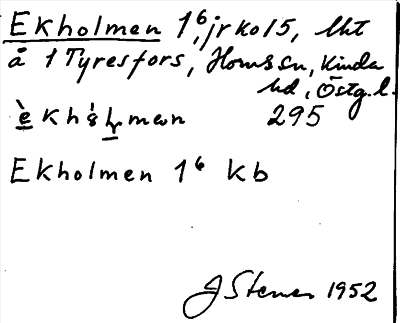 Ekholmen 1⁶, jrko15, lht
å 1 Tyresfors, Horns sn, Kinda
hd, Östg. l.
èkhòl̥man 295
Ekholmen 1⁶ kb
J Stenus 1952